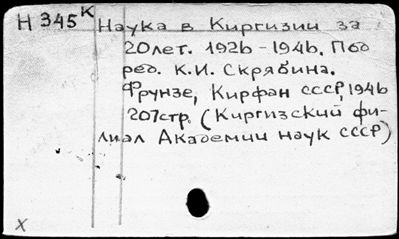 Н 345 К Наука в Киргизии за
20лет. 1926-1946. Под
ред. К.И. Скрябина.
Фрунзе, Кирфан СССР, 1946
207стр. (Киргизский фи-
лиал Академии наук СССР)
X